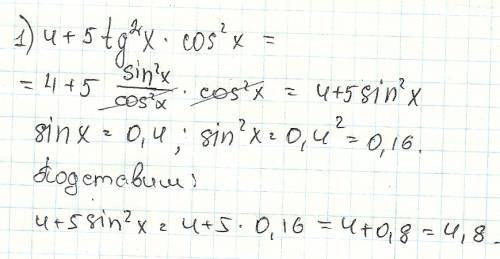 1) 4 + 5 tg²x · cos²x =
= 4 + 5 sin²x/cos²x · cos²x = 4+5 sin²x
sin x = 0,4 ; sin²x = 0,4² = 0,16.
Подставим:
4+5 sin²x = 4+5 · 0,16 = 4+0,8 = 4,8.